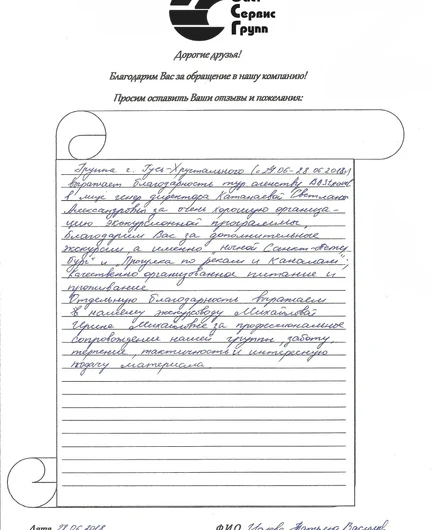 Сервис
Групп
Дорогие друзья!
Благодарим Вас за обращение в нашу компанию!
Просим оставить Ваши отзывы и пожелания:
Группа г. Гусь-Хрустального (с 24.06-28.06.2018г)
выражает благодарность тур. агенству
в лице генер директора Светлане
Александровне за очень хорошую организа-
цию экскурсионной программы,
Благодарим Вас за дополнительные
экскурсии а именно "ночной Санкт-Петер
бург" и "Прогулка по рекам и каналам";
качественно организованное питание и
проживание.
Отдельную благодарность выражаем
нашему экскурсоводу Михайловой
Ирине Михайловне за профессиональное
сопровождение нашей группы, заботу,
терпение, тактичность и интересную
подачу материала.
Дата 28.06.2018 Ф.И.О. Татьяна